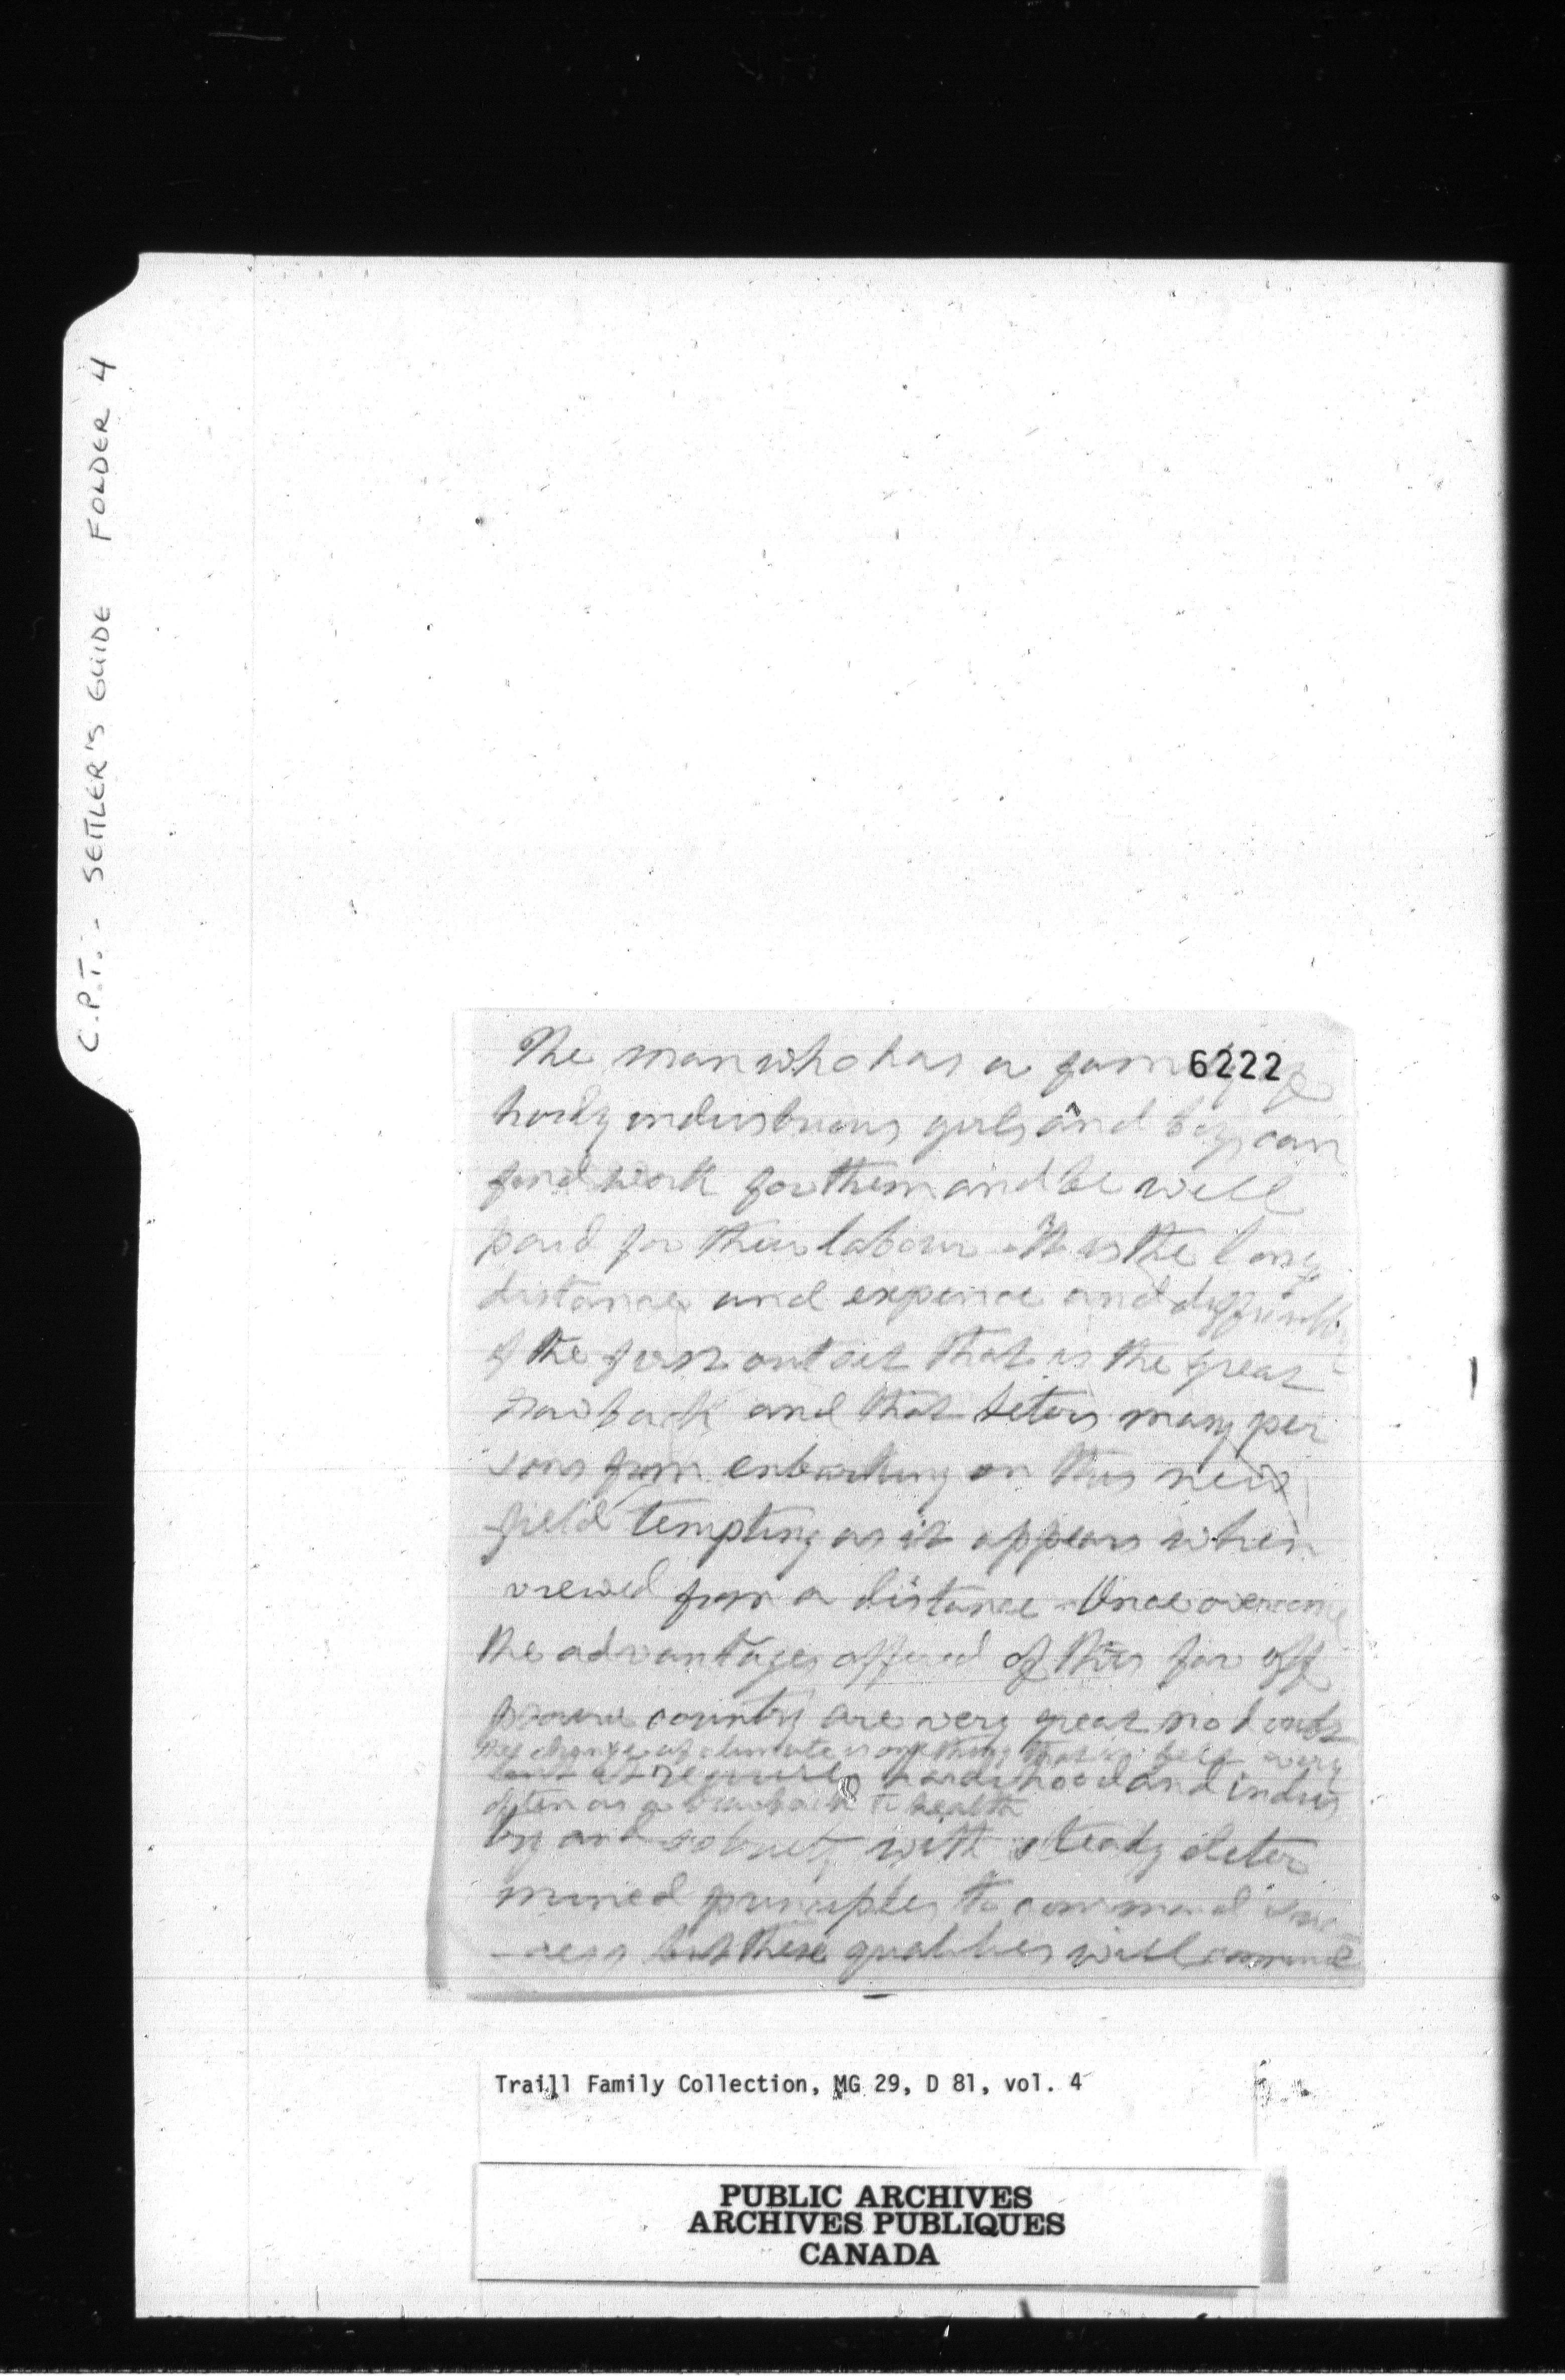 C.P.T. - SETTLER'S GUIDE FOLDER 4
6222
The man who has a family of
hardy industrious girls and boys can
find work for them and be well
paid for their labour - It is the long
distance and expence and difficulty
of the first outset that is the great
drawback and that deters many per
sons from embarking on this new
field tempting as it appears when
viewed from a distance - Once overcome
the advantages offered of this far off
prairie country are very great no doubt
the change of climate is one thing that is felt very
but it requires hardihood and indus
often as a drawback to health
try and sobriety with steady deter
mined principles to command suc
-cess but these qualities will command
Traill Family Collection, MG 29, D 81, vol. 4
PUBLIC ARCHIVES
ARCHIVES PUBLIQUES
CANADA